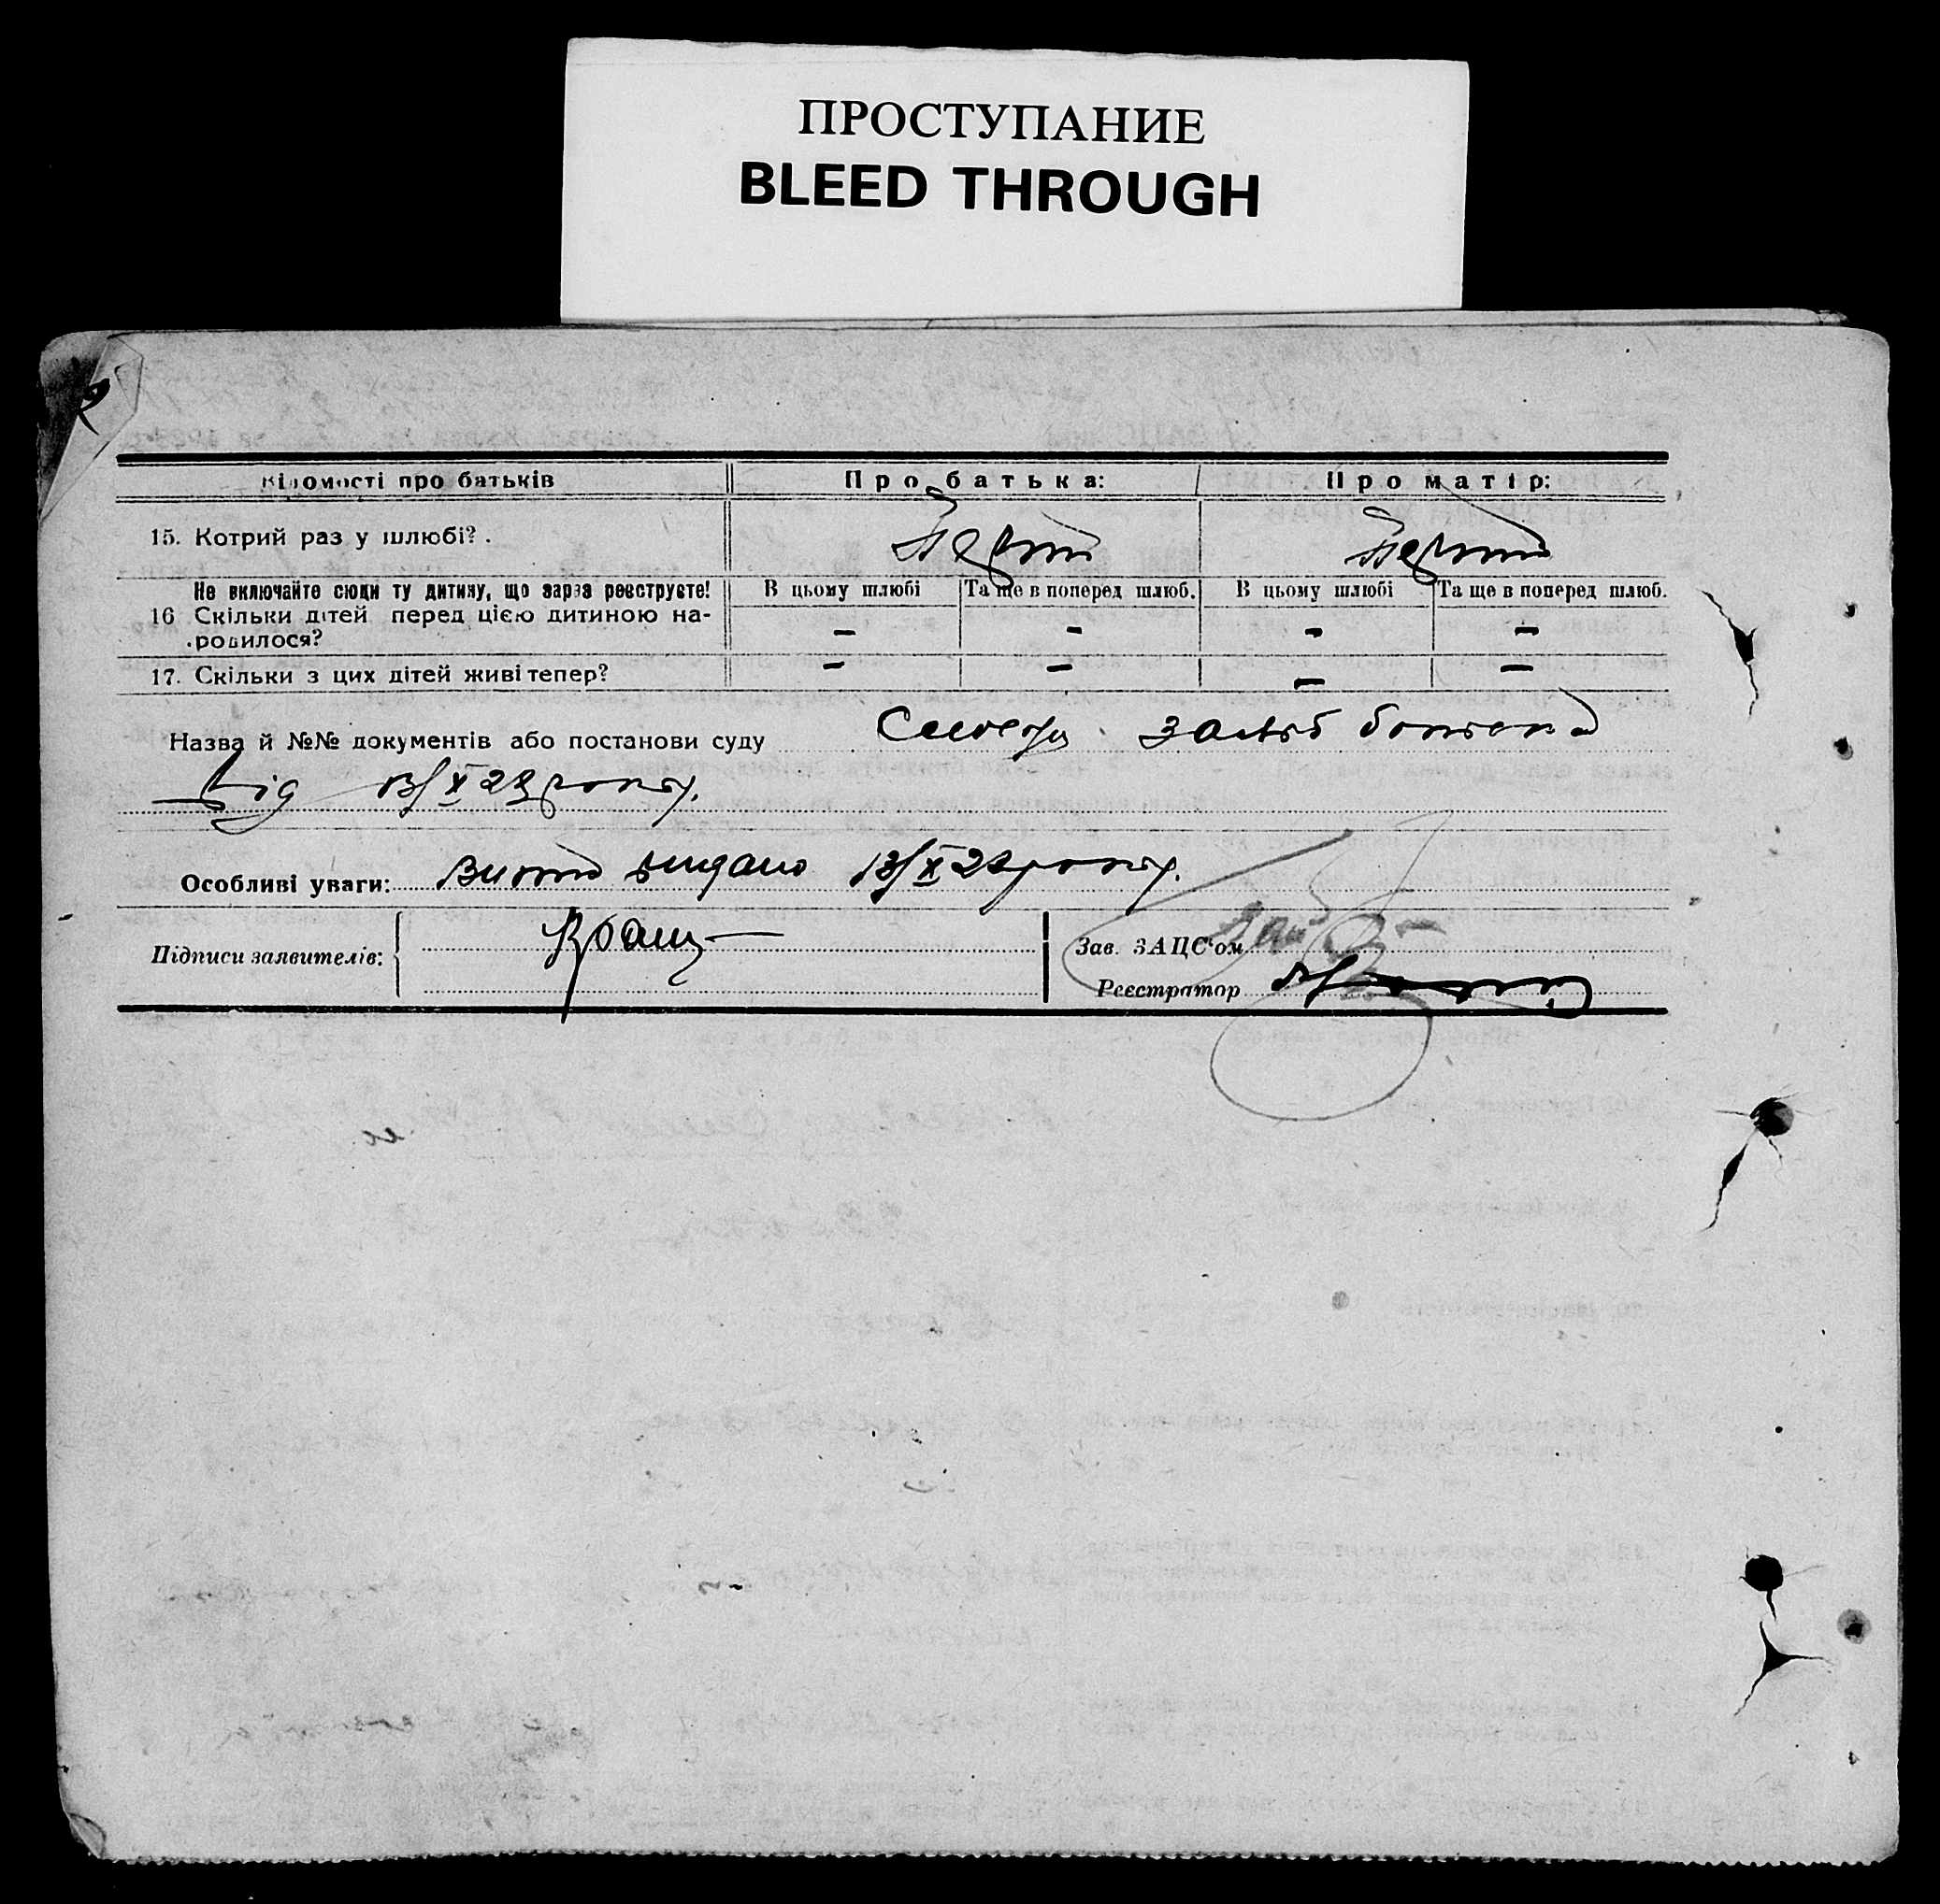 ПРОСТУПАНИЕ
BLEED THROUGH
Відомості про батьків Про батька: Про матір:
15. Котрий раз у шлюбі?. Перший Перший
Не включайте сюди ту дитину, що зараз реєструєте! В цьому шлюбі Та ще в поперед шлюб. В цьому шлюбі Та ще в поперед шлюб.
16 Скільки дітей перед цією дитиною на-
родилося? — — — —
17. Скільки з цих дітей живі тепер? — — — —
Назва й №№ документів або постанови суду заяв батька
від 13/X 28 року.
Особливі уваги: Витяг видано 13/X 28 року.
Підписи заявителів:
Зав. ЗАЦС'ом
Реєстратор